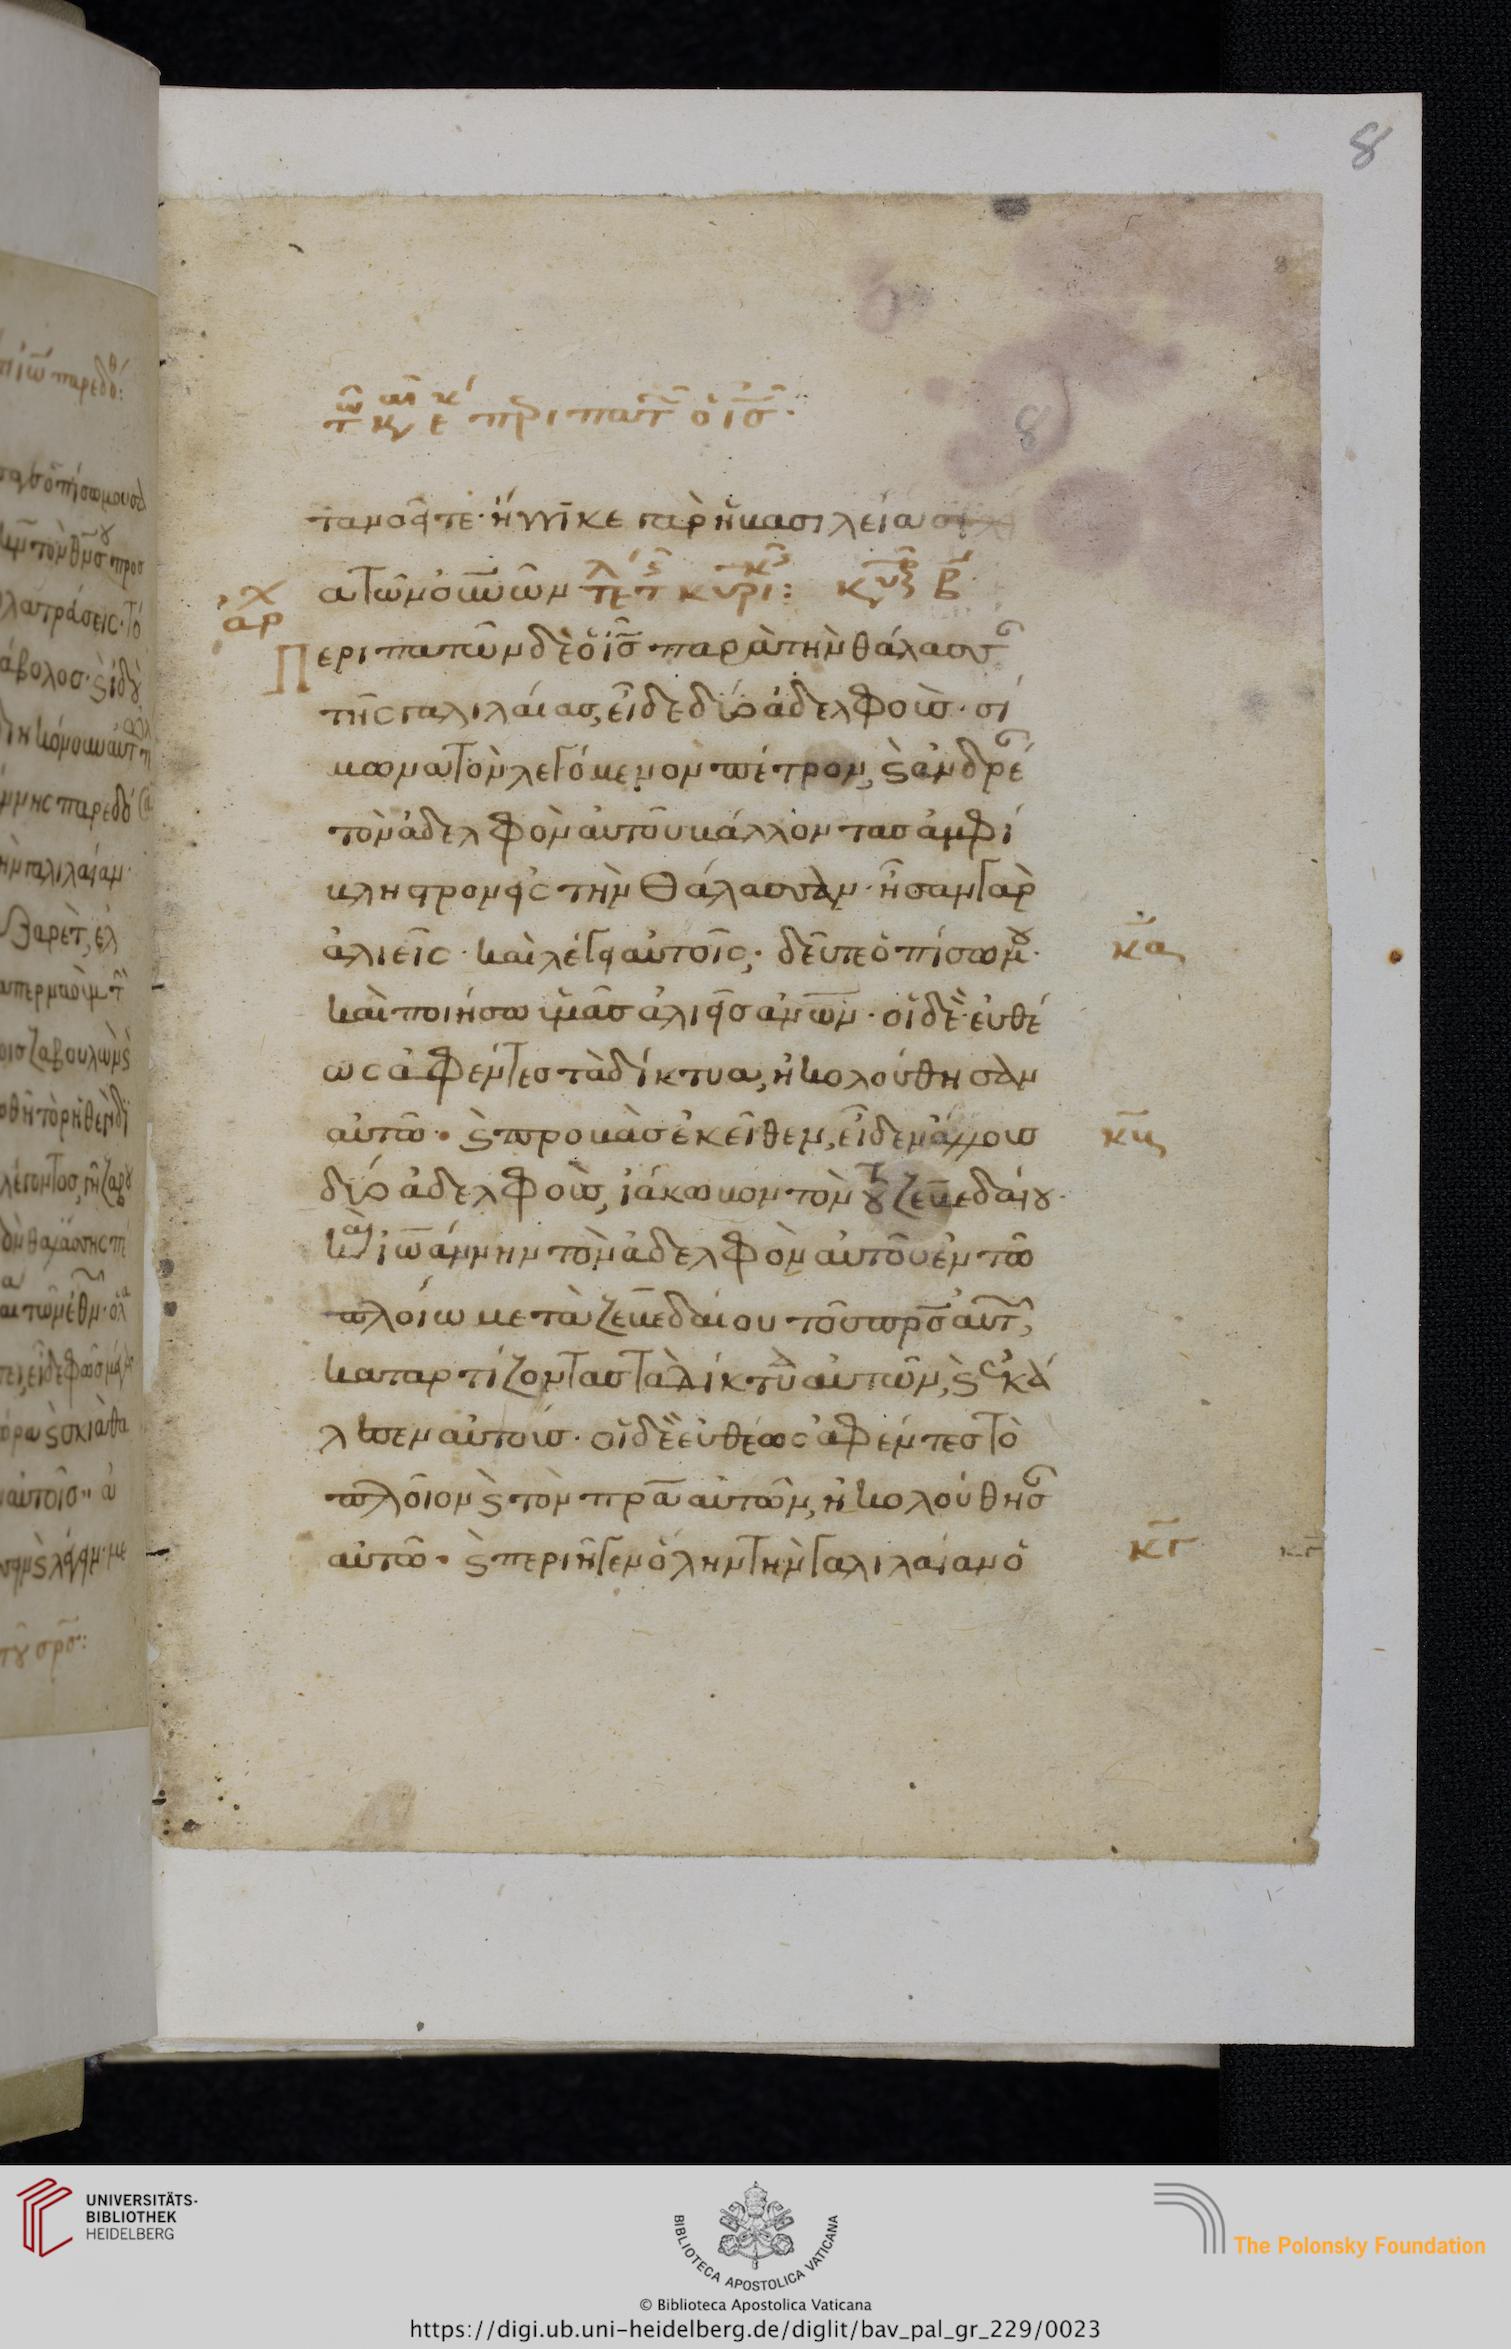 8
8
τανοεῖτε· ἤγγικε γὰρ ἡ βασιλεία
τῶν οὐνῶν
αρχ
Περιπατῶν δὲ ὁ ις παρὰ τὴν θάλασσ
τῆς γαλιλαίας, εἶδε δύο ἀδελφοὺς· σί
μωνα τὸν λεγόμενον πέτρον, ϗ ἀνδρέ
τὸν ἀδελφὸν αὐτοῦ βάλλοντας ἀμφί
βληστρον εἰς τὴν θάλασσαν· ἦσαν γὰρ
ἁλιεῖς· καὶ λέγει αὐτοῖς· δεῦτε ὀπίσω μου·
κα
καὶ ποιήσω ὑμᾶς ἁλιεῖς ανων· οἱ δὲ εὐθέ
ως ἀφέντες τὰ δίκτυα, ἠκολούθησαν
αὐτῶ· ϗ προβὰς ἐκεῖθεν, εἶδεν ἄλλους
κβ
δύο ἀδελφοὺς, ἰάκωβον τὸν τοῦ ζεβεδαίου·
καὶ ἰωάννην τὸν ἀδελφὸν αὐτοῦ ἐν τῶ
πλοίω μετὰ ζεβεδαίου τοῦ πρς αὐτ,
καταρτίζοντας τὰ δίκτυα αὐτῶν, ϗ ἐκά
λεσεν αὐτούς· οἱ δὲ εὐθέως ἀφέντες τὸ
πλοῖον ϗ τὸν πρα αὐτῶν, ἠκολούθησ
αὐτῶ· ϗ περιῆγεν ὅλην τὴν γαλιλαίαν ὁ
κγ
UNIVERSITÄTS-
BIBLIOTHEK
HEIDELBERG
BIBLIOTECA APOSTOLICA VATICANA
The Polonsky Foundation
© Biblioteca Apostolica Vaticana
https://digi.ub.uni-heidelberg.de/diglit/bav_pal_gr_229/0023